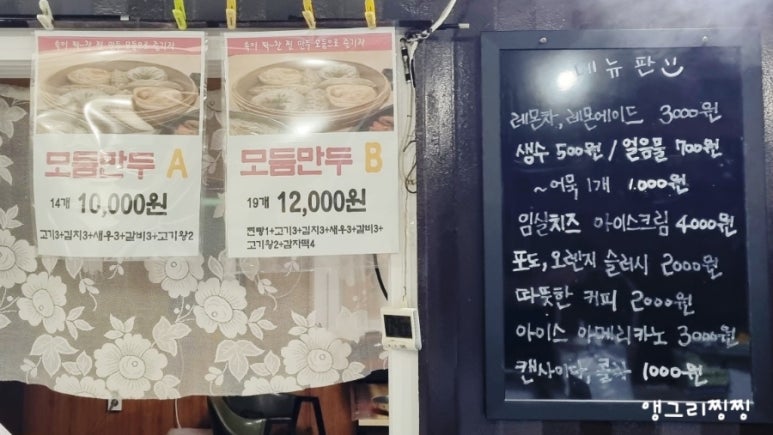 속이 꽉~찬 찐 만두 모듬으로 즐기자
모듬만두 A
14개 10,000원
고기3+김치3+새우3+갈비3+고기왕2
속이 꽉~찬 찐 만두 모듬으로 즐기자
모듬만두 B
19개 12,000원
찐빵1+고기3+김치3+새우3+갈비3+
고기왕2+감자떡4
메뉴판
레몬차, 레몬에이드 3000원
생수 500원 / 얼음물 700원
~어묵 1개 1.000원
임실치즈 아이스크림 4000원
포도, 오렌지 슬러시 2000원
따뜻한 커피 2000원
아이스 아메리카노 3000원
캔사이다, 콜라 1000원
앵그리찡찡